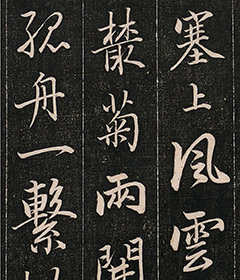 塞上風雲
叢菊兩開
孤舟一繫